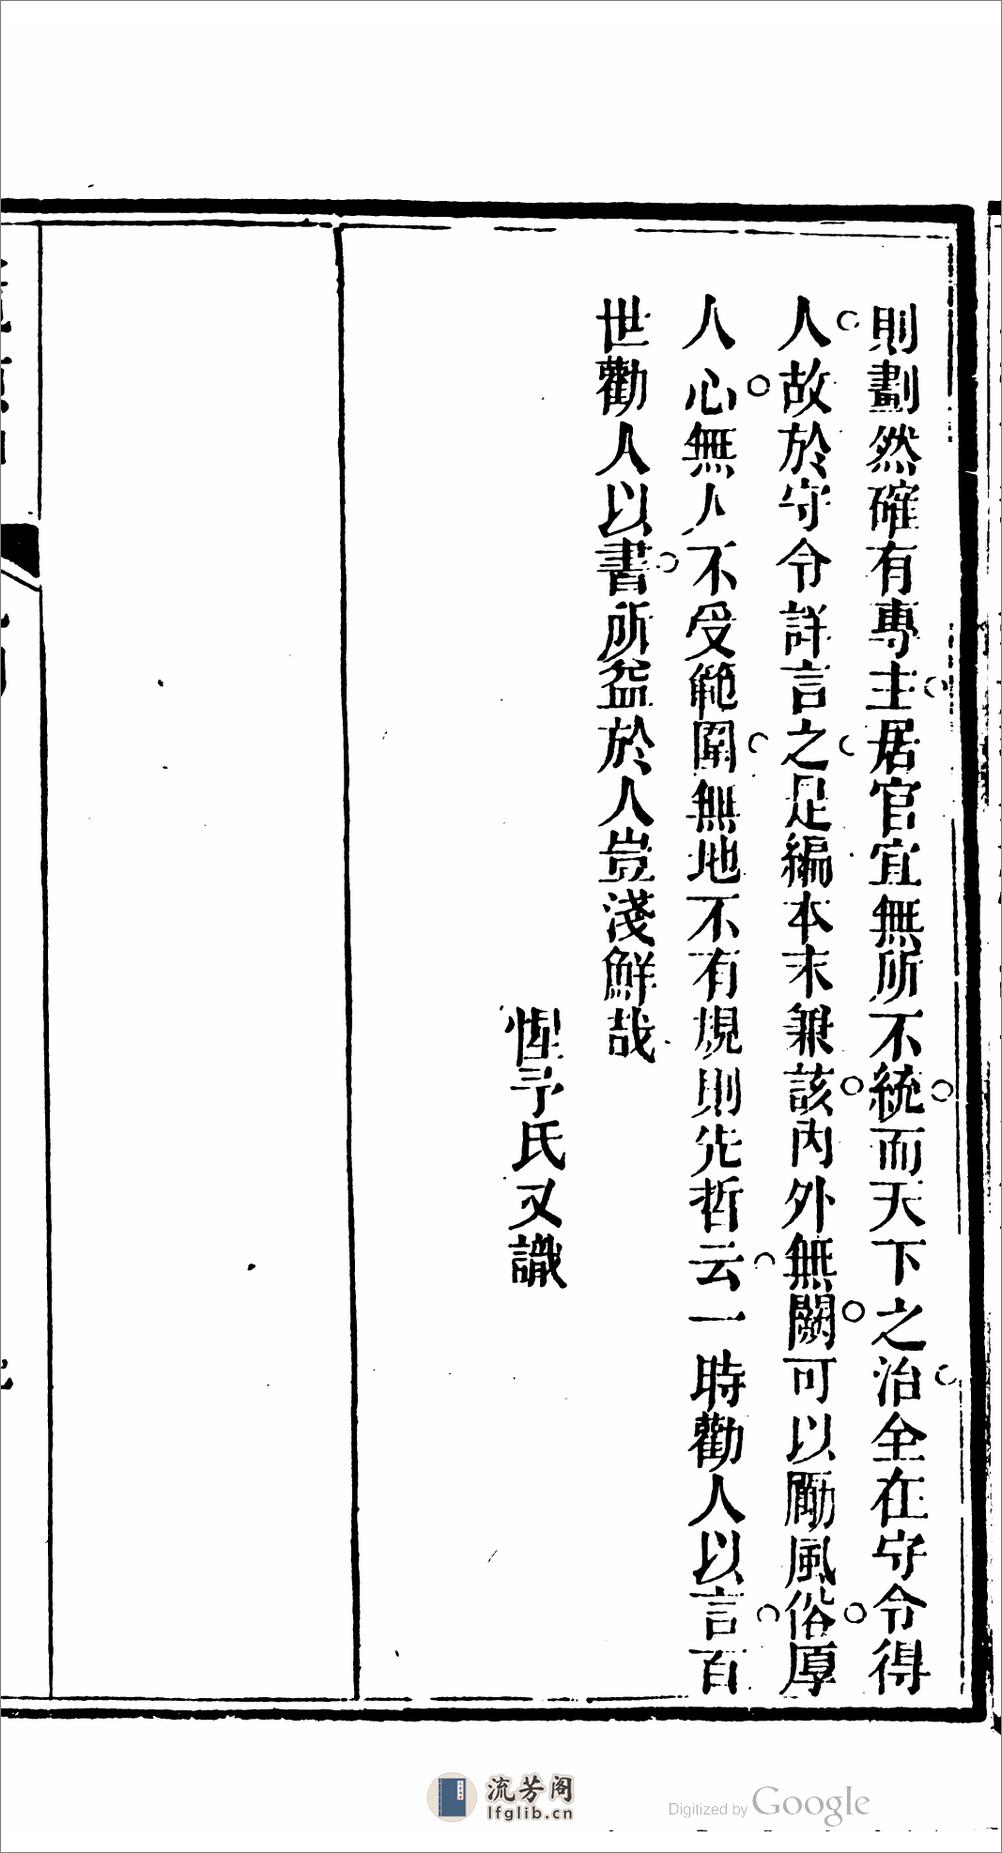 則劃然確有專主居官宜無所不統而天下之治全在守令得
人故於守令詳言之是編本末兼該內外無闕可以勵風俗厚
人心無人不受範圍無地不有規則先哲云一時勸人以言百
世勸人以書所益於人豈淺鮮哉
惺予氏又識
流芳阁
lfglib.cn
Digitized by Google